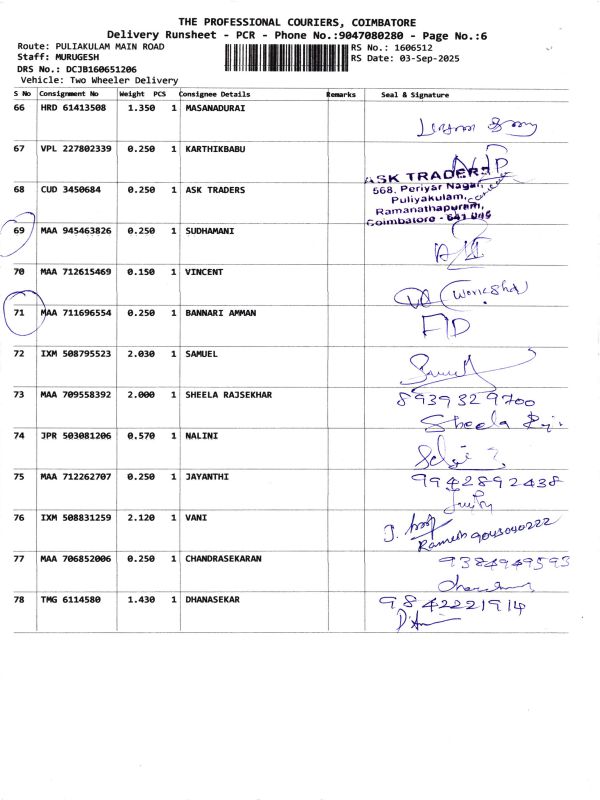 THE PROFESSIONAL COURIERS, COIMBATORE
Delivery Runsheet - PCR - Phone No.:9047080280 - Page No.:6
Route: PULIAKULAM MAIN ROAD RS No.: 1606512
Staff: MURUGESH RS Date: 03-Sep-2025
DRS No.: DCJB160651206
Vehicle: Two Wheeler Delivery
S No Consignment No Weight PCS Consignee Details Remarks Seal & Signature
66 HRD 61413508 1.350 1 MASANADURAI
67 VPL 227802339 0.250 1 KARTHIKBABU
68 CUD 3450684 0.250 1 ASK TRADERS
ASK TRADERS
568, Periyar Nagar,
Puliyakulam,
Ramanathapuram,
Coimbatore - 641 045
69 MAA 945463826 0.250 1 SUDHAMANI
70 MAA 712615469 0.150 1 VINCENT
Workshd
71 MAA 711696554 0.250 1 BANNARI AMMAN
72 IXM 508795523 2.030 1 SAMUEL
Samuel
73 MAA 709558392 2.000 1 SHEELA RAJSEKHAR
8939329700
Sheela
74 JPR 503081206 0.570 1 NALINI
75 MAA 712262707 0.250 1 JAYANTHI
9942892438
76 IXM 508831259 2.120 1 VANI
Ramesh 9043040222
77 MAA 706852006 0.250 1 CHANDRASEKARAN
9384949593
78 TMG 6114580 1.430 1 DHANASEKAR
9842221914